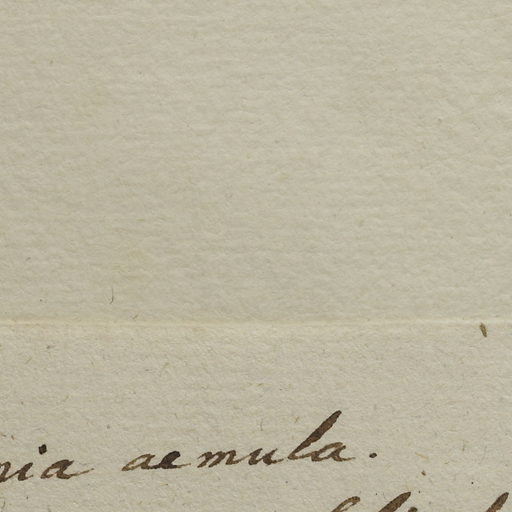 nia aemula.